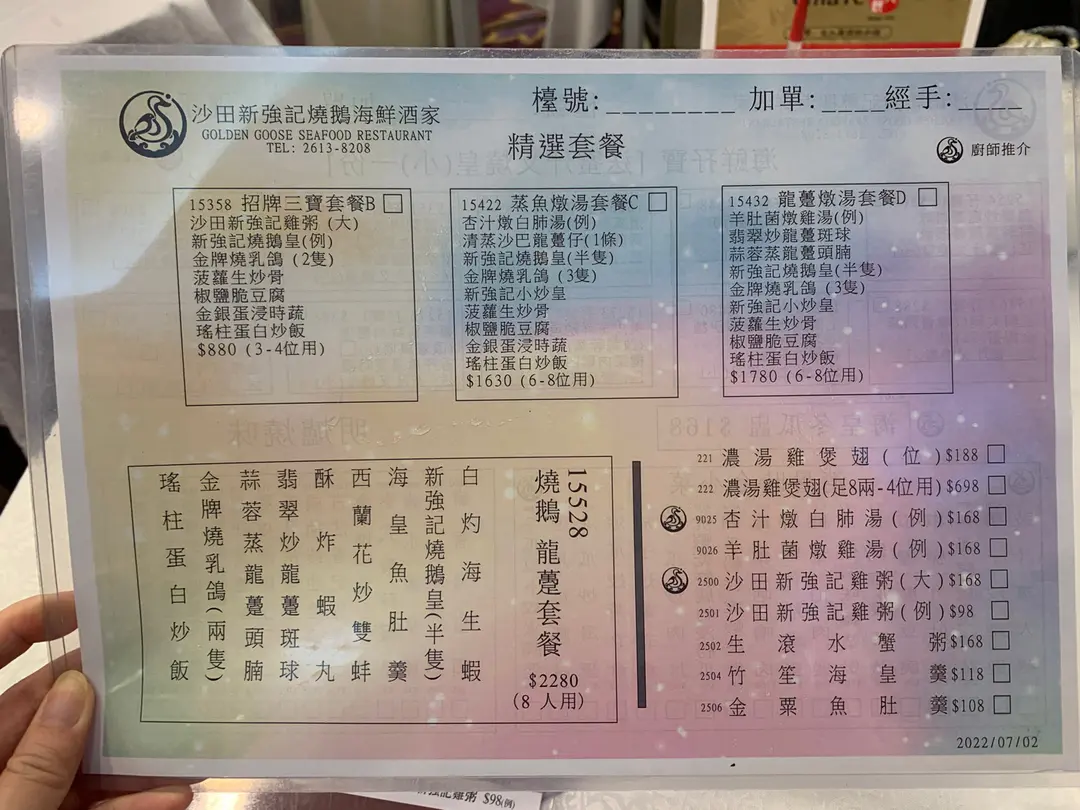 沙田新強記燒鵝海鮮酒家
GOLDEN GOOSE SEAFOOD RESTAURANT
TEL: 2613-8208
檯號:_________ 加單:____ 經手:____
精選套餐
廚師推介
15358 招牌三寶套餐B
沙田新強記雞粥 (大)
新強記燒鵝皇(例)
金牌燒乳鴿 (2隻)
菠蘿生炒骨
椒鹽脆豆腐
金銀蛋浸時蔬
瑤柱蛋白炒飯
$880 (3-4位用)
15422 蒸魚燉湯套餐C
杏汁燉白肺湯(例)
清蒸沙巴龍躉仔(1條)
新強記燒鵝皇(半隻)
金牌燒乳鴿 (3隻)
新強記小炒皇
菠蘿生炒骨
椒鹽脆豆腐
金銀蛋浸時蔬
瑤柱蛋白炒飯
$1630 (6-8位用)
15432 龍躉燉湯套餐D
羊肚菌燉雞湯(例)
翡翠炒龍躉斑球
蒜蓉蒸龍躉頭腩
新強記燒鵝皇(半隻)
金牌燒乳鴿 (3隻)
新強記小炒皇
菠蘿生炒骨
椒鹽脆豆腐
瑤柱蛋白炒飯
$1780 (6-8位用)
15528
燒鵝龍躉套餐
$2280
(8 人用)
白灼海生蝦
新強記燒鵝皇(半隻)
海皇魚肚羹
西蘭花炒雙蚌
酥炸蝦丸
翡翠炒龍躉斑球
蒜蓉蒸龍躉頭腩
金牌燒乳鴿(兩隻)
瑤柱蛋白炒飯
221 濃湯雞煲翅(位)$188
222 濃湯雞煲翅(足8兩-4位用)$698
9025 杏汁燉白肺湯(例)$168
9026 羊肚菌燉雞湯(例)$168
2500 沙田新強記雞粥(大)$168
2501 沙田新強記雞粥(例)$98
2502 生滾水蟹粥$168
2504 竹笙海皇羹$118
2506 金粟魚肚羹$108
2022/07/02
強記雞粥 $98(例)